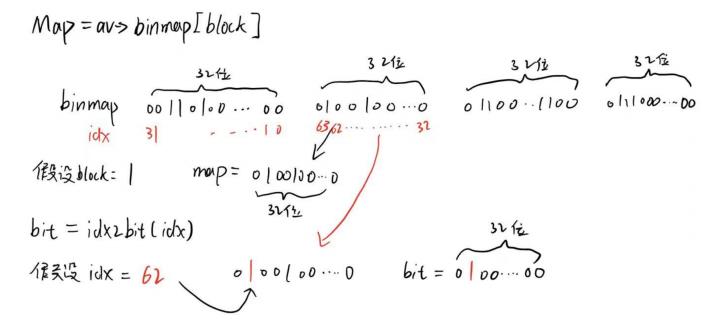 Map = av->binmap[block]
32位 32位 32位 32位
binmap 00110100 ... 00 0100100 ... 0 01100 .. 1100 0111000 ... 00
idx 31 . - - - . 1 0 63 62 ......... 32
假设block: 1 map = 0100100 ... 0
32位
bit = idx2bit(idx)
32位
假设 idx = 62 0100100 ... 0 bit = 0100 ... 00